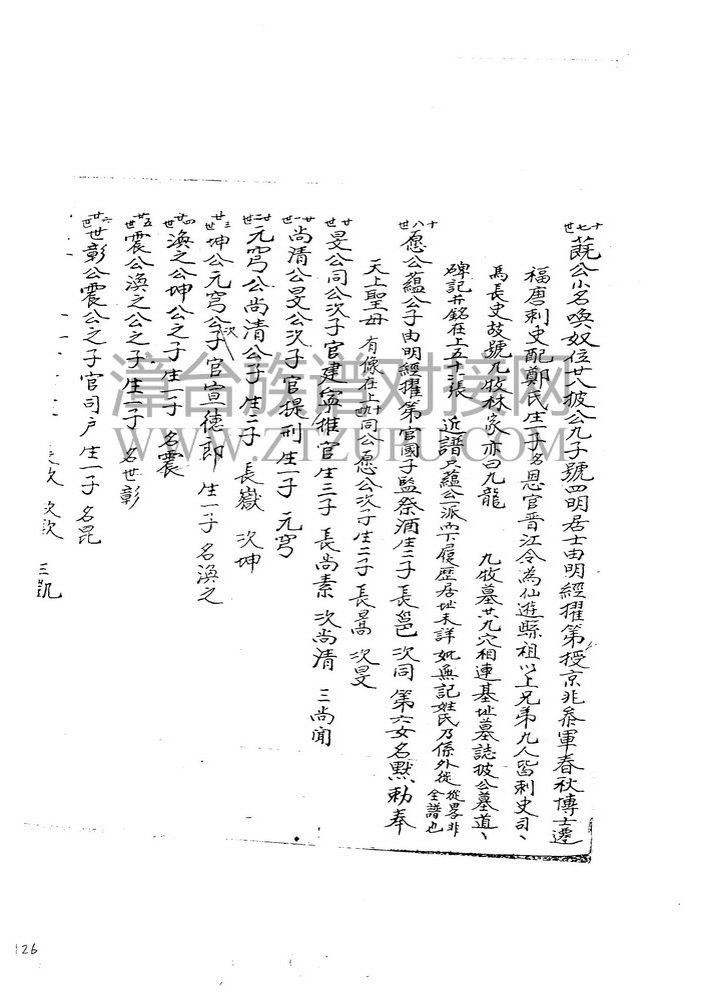 十七世 蓛公小名喚奴位廿八披公九子號四明居士由明經擢第授京兆叅軍春秋博士遷
福唐刺史配鄭氏生一子名恩官晋江令為仙遊縣祖以上兄弟九人皆刺史司、
馬長史故號九牧林家亦曰九龍 九牧墓廿九穴相連基址墓誌披公墓道、
碑記并銘在上五十張 近譜只蘊公一派而下履歴居址未詳 無記姓氏乃係外徙從畧非全譜也
十八世 愿公蘊公子由明經擢第官國子監祭酒生二子長邕 次同 第六女名默勅奉
天上聖母 有像在上 同公愿公次子生二子長暠 次旻
廿世 旻公同公次子官建寕推官生三子 長尚素 次尚清 三尚闻
廿一世 尚清公旻公次子官提刑生一子 元穹
廿二世 元穹公尚清公子生二子 長嶽 次坤
廿三世 坤公元穹公次子官宣德郎 生一子 名渙之
廿四世 渙之公坤公之子生一子 名震
廿五世 震公渙之公之子生一子 名世彰
廿六世 世彰公震公之子官司户 生一子 名昆
次 次 三凱
126
漳台族谱对接网
WWW.ZTZUPU.COM